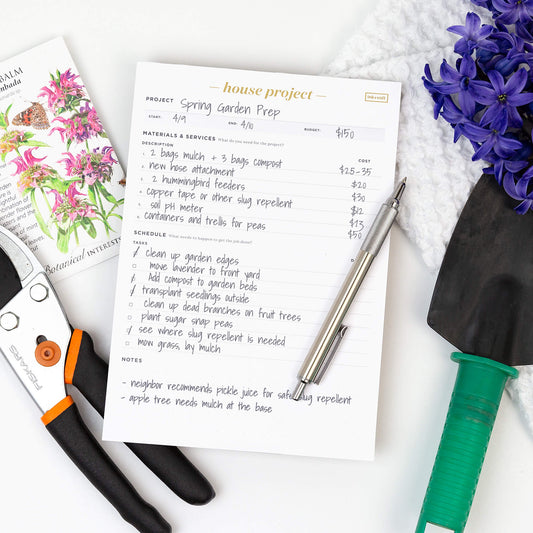 BALM
mbada
Botanical Interests
FISKARS
house project
ink+volt
PROJECT Spring Garden Prep
START: 4/9 END: 4/10 BUDGET: $150
MATERIALS & SERVICES What do you need for the project?
DESCRIPTION COST
2 bags mulch + 3 bags compost $25-35
new hose attachment $20
2 hummingbird feeders $30
copper tape or other slug repellent $12
soil pH meter $13
containers and trellis for peas $50
SCHEDULE What needs to happen to get the job done?
TASKS D
clean up garden edges
move lavender to front yard
Add compost to garden beds
transplant seedlings outside
clean up dead branches on fruit trees
plant sugar snap peas
see where slug repellent is needed
mow grass, lay mulch
NOTES
- neighbor recommends pickle juice for safe slug repellent
- apple tree needs mulch at the base